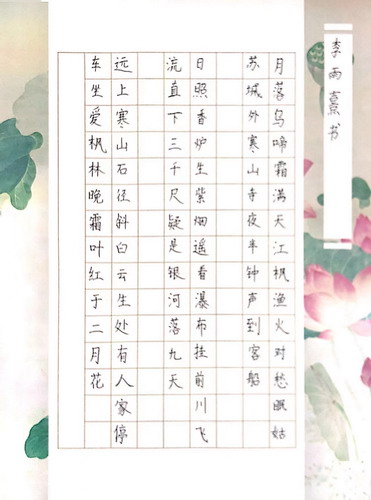 李雨熹书
月落乌啼霜满天江枫渔火对愁眠姑
苏城外寒山寺夜半钟声到客船
日照香炉生紫烟遥看瀑布挂前川飞
流直下三千尺疑是银河落九天
远上寒山石径斜白云生处有人家停
车坐爱枫林晚霜叶红于二月花